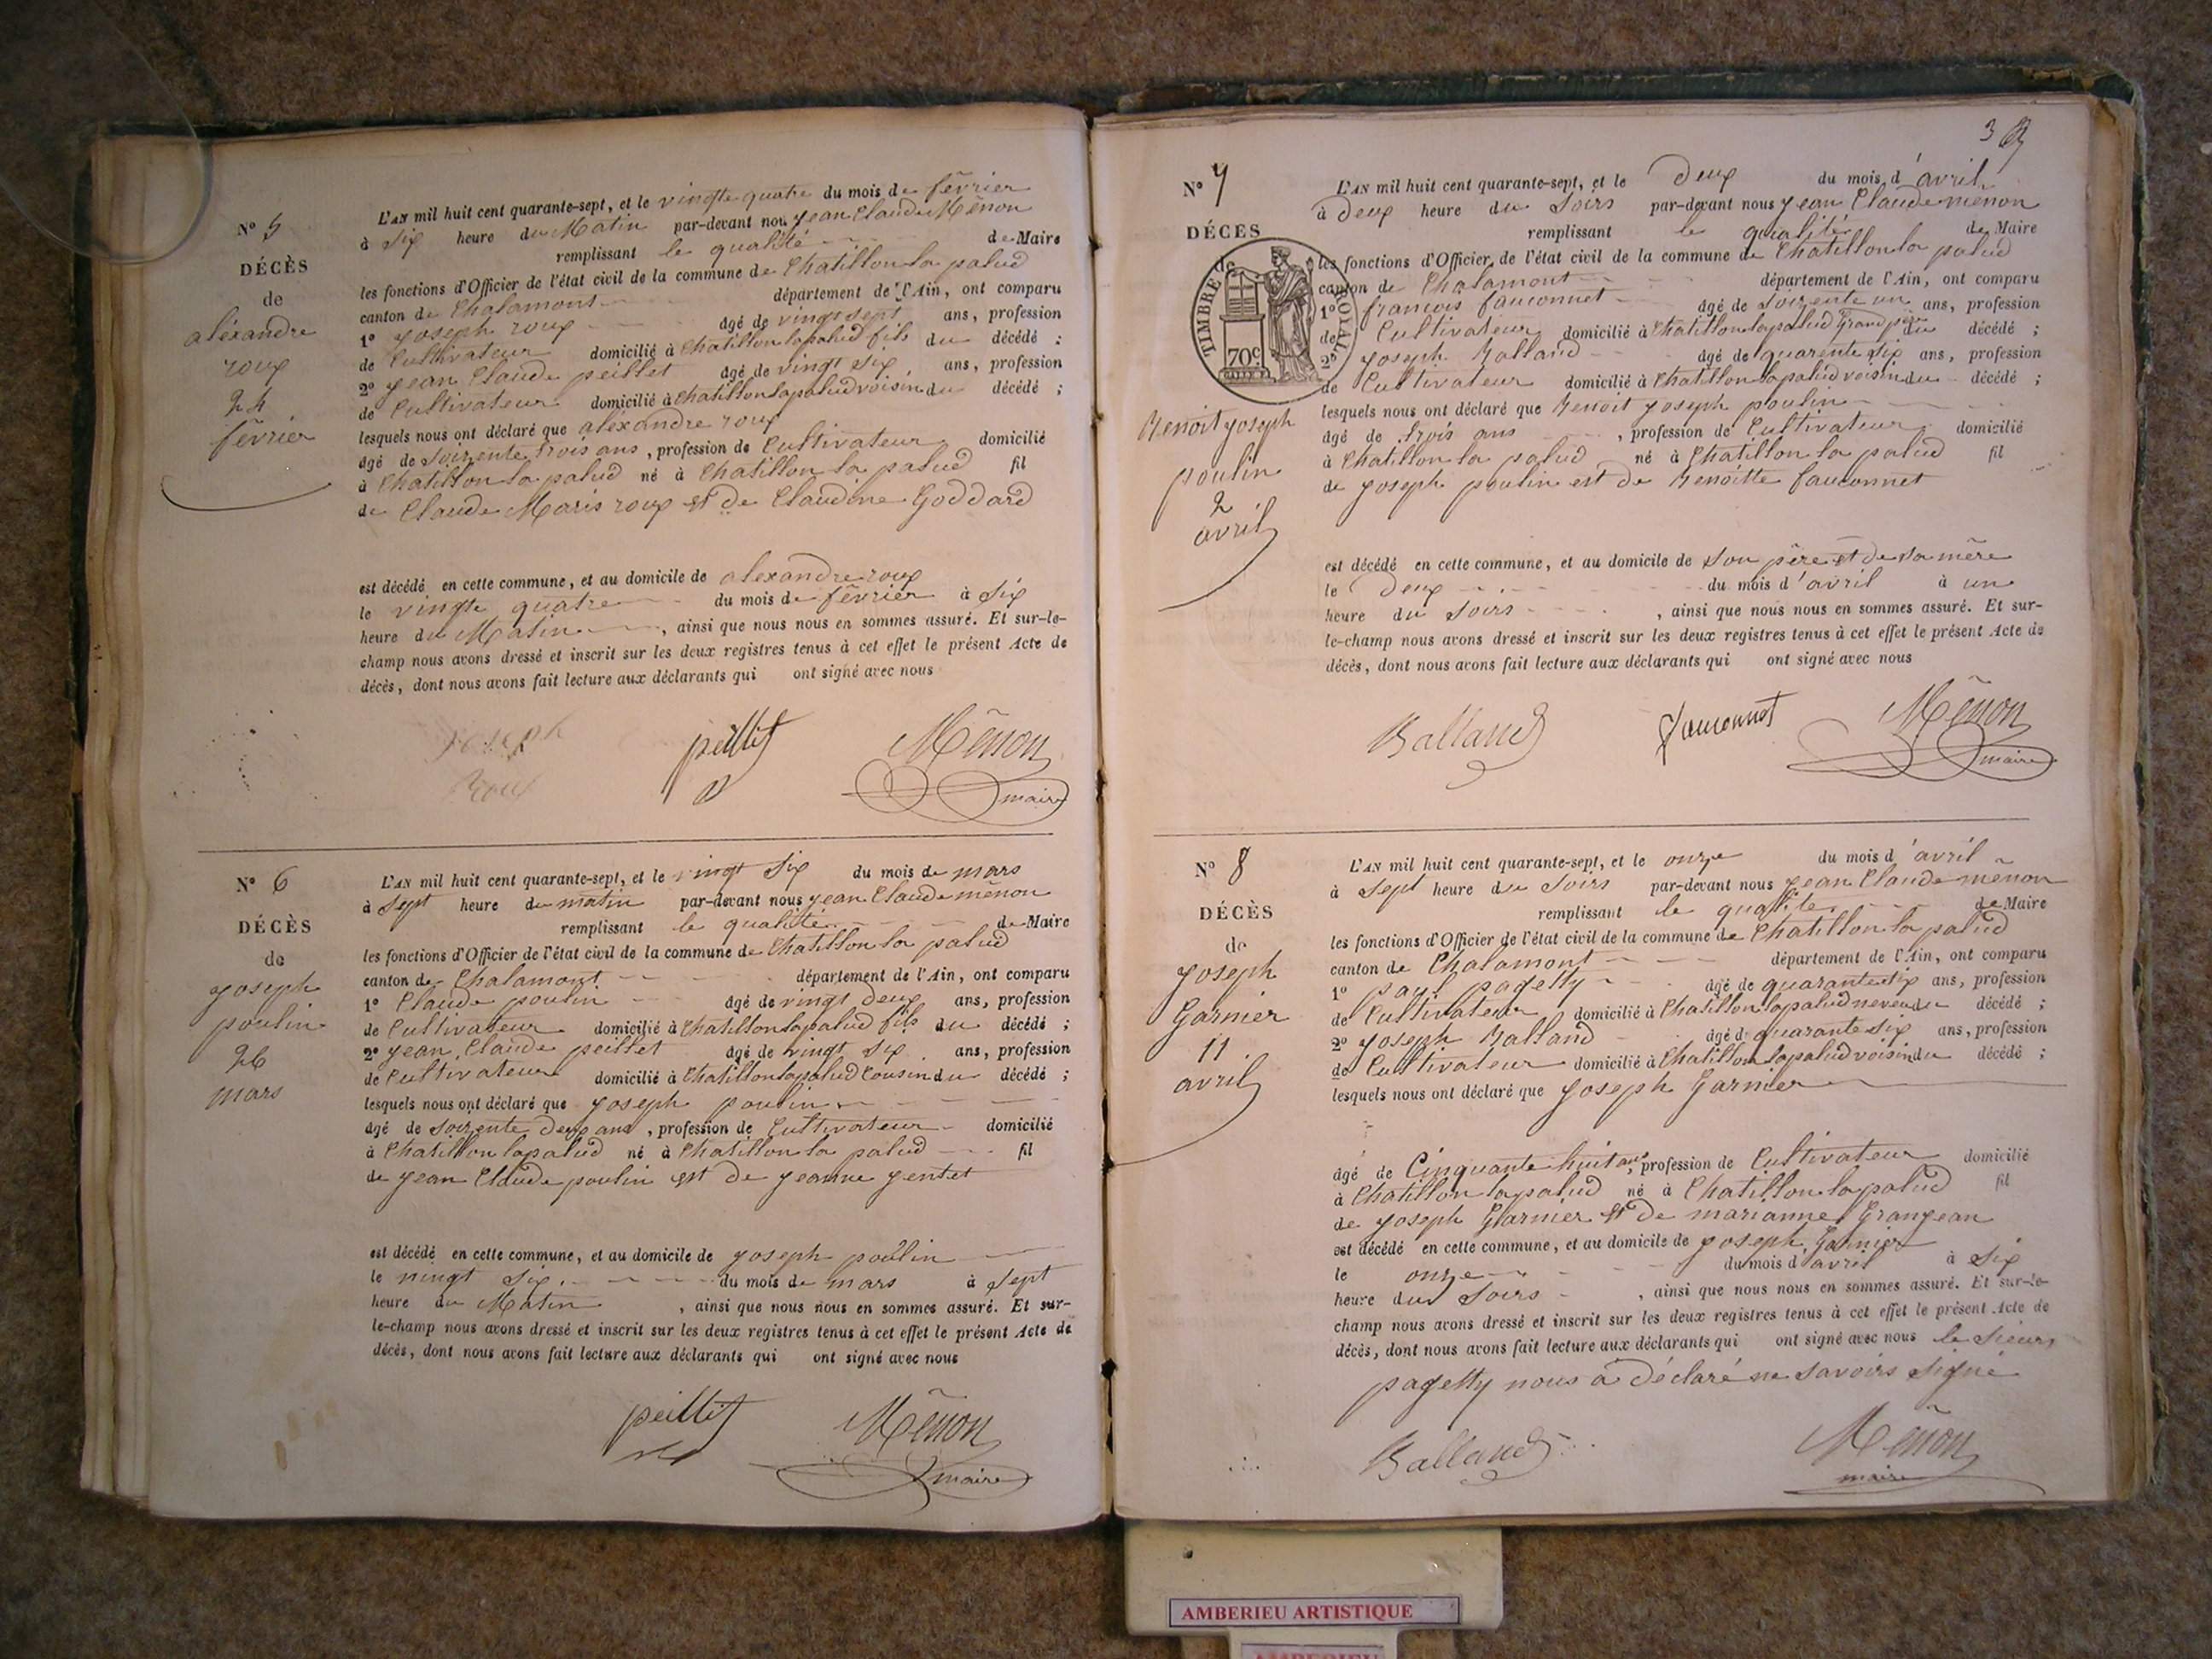 N° 5
DÉCÈS
de
aléxandre
roux
24
février
L'AN mil huit cent quarante-sept, et le vingte quatre du mois de février
à six heure du Matin par-devant nou jean Claude Mênon
remplissant le qualité de Maire
les fonctions d'Officier de l'état civil de la commune de Chatillon la palud
canton de Chalamont département de l'Ain, ont comparu
1° joseph roux âgé de vingt sept ans, profession
de Cultivateur domicilié à Chatillon lapalud fils du décédé ;
2° jean Claude peillet âgé de vingt six ans, profession
de Cultivateur domicilié à Chatillon lapalud voisin du décédé ;
lesquels nous ont déclaré que aléxandre roux
âgé de soixente trois ans, profession de Cultivateur domicilié
à Chatillon la palud né à Chatillon la palud fil
de Claude Maris roux et de Claudine Goddard
est décédé en cette commune, et au domicile de alexandre roux
le vingte quatre du mois de février à six
heure du Matin, ainsi que nous nous en sommes assuré. Et sur-le-
champ nous avons dressé et inscrit sur les deux registres tenus à cet effet le présent Acte de
décès, dont nous avons fait lecture aux déclarants qui ont signé avec nous
Joseph peillet Mênon
Roux maire
N° 6
DÉCÈS
de
joseph
poulin
26
mars
L'AN mil huit cent quarante-sept, et le vingt six du mois de mars
à sept heure du matin par-devant nous jean Claude mênon
remplissant le qualité de Maire
les fonctions d'Officier de l'état civil de la commune de Chatillon la palud
canton de Chalamont département de l'Ain, ont comparu
1° Claude poulin âgé de vingt deux ans, profession
de Cultivateur domicilié à Chatillon lapalud fils du décédé ;
2° jean Claude peillet âgé de vingt six ans, profession
de Cultivateur domicilié à Chatillon lapalud Cousin du décédé ;
lesquels nous ont déclaré que joseph poulin
âgé de soixente deux ans, profession de Cultivateur domicilié
à Chatillon lapalud né à Chatillon la palud fil
de jean Claude poulin est de jeanne jentet
est décédé en cette commune, et au domicile de joseph poulin
le vingt six du mois de mars à sept
heure du Matin, ainsi que nous nous en sommes assuré. Et sur-
le-champ nous avons dressé et inscrit sur les deux registres tenus à cet effet le présent Acte de
décès, dont nous avons fait lecture aux déclarants qui ont signé avec nous
peillet Mênon
maire
3
N° 7
DÉCÈS
de
TIMBRE ROYAL
70c
Benoit joseph
poulin
2
avril
L'AN mil huit cent quarante-sept, et le deux du mois d'avril
à deux heure du soirs par-devant nous jean Claude menon
remplissant le qualité de Maire
les fonctions d'Officier de l'état civil de la commune de Chatillon la palud
canton de Chalamont département de l'Ain, ont comparu
1° francois fauconnet âgé de soixente un ans, profession
de Cultivateur domicilié à Chatillon lapalud Grand père du décédé ;
2° joseph Balland âgé de quarente six ans, profession
de Cultivateur domicilié à Chatillon lapalud voisin du décédé ;
lesquels nous ont déclaré que Benoit joseph poulin
âgé de trois ans, profession de Cultivateur domicilié
à Chatillon la palud né à Chatillon la palud fil
de joseph poulin est de Benoitte fauconnet
est décédé en cette commune, et au domicile de son père et de sa mère
le deux du mois d'avril à un
heure du soirs, ainsi que nous nous en sommes assuré. Et sur-
le-champ nous avons dressé et inscrit sur les deux registres tenus à cet effet le présent Acte de
décès, dont nous avons fait lecture aux déclarants qui ont signé avec nous
Balland fauconnet Mênon
maire
N° 8
DÉCÈS
de
joseph
Garnier
11
avril
L'AN mil huit cent quarante-sept, et le onze du mois d'avril
à sept heure du soirs par-devant nous jean Claude mênon
remplissant le qualité de Maire
les fonctions d'Officier de l'état civil de la commune de Chatillon la palud
canton de Chalamont département de l'Ain, ont comparu
1° paul pagetty âgé de quarante six ans, profession
de Cultivateur domicilié à Chatillon lapalud neveu du décédé ;
2° joseph Balland âgé de quarante six ans, profession
de Cultivateur domicilié à Chatillon lapalud voisin du décédé ;
lesquels nous ont déclaré que joseph Garnier
âgé de Cinquante huit ans, profession de Cultivateur domicilié
à Chatillon lapalud né à Chatillon lapalud fil
de joseph Garnier et de marianne Granjean
est décédé en cette commune, et au domicile de joseph Garnier
le onze du mois d'avril à six
heure du soirs, ainsi que nous nous en sommes assuré. Et sur-le-
champ nous avons dressé et inscrit sur les deux registres tenus à cet effet le présent Acte de
décès, dont nous avons fait lecture aux déclarants qui ont signé avec nous le sieur
pagetty nous a déclaré ne savoirs signé
Balland Mênon
maire
AMBERIEU ARTISTIQUE
AMBERIEU